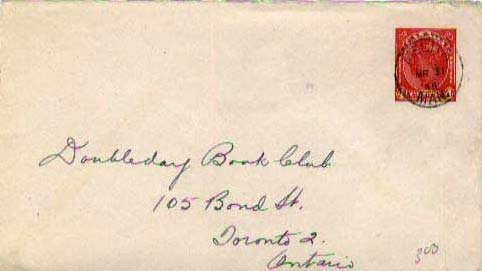 MR 3
MAN
Doubleday Book Club
105 Bond St.
Toronto 2.
Ontario
300